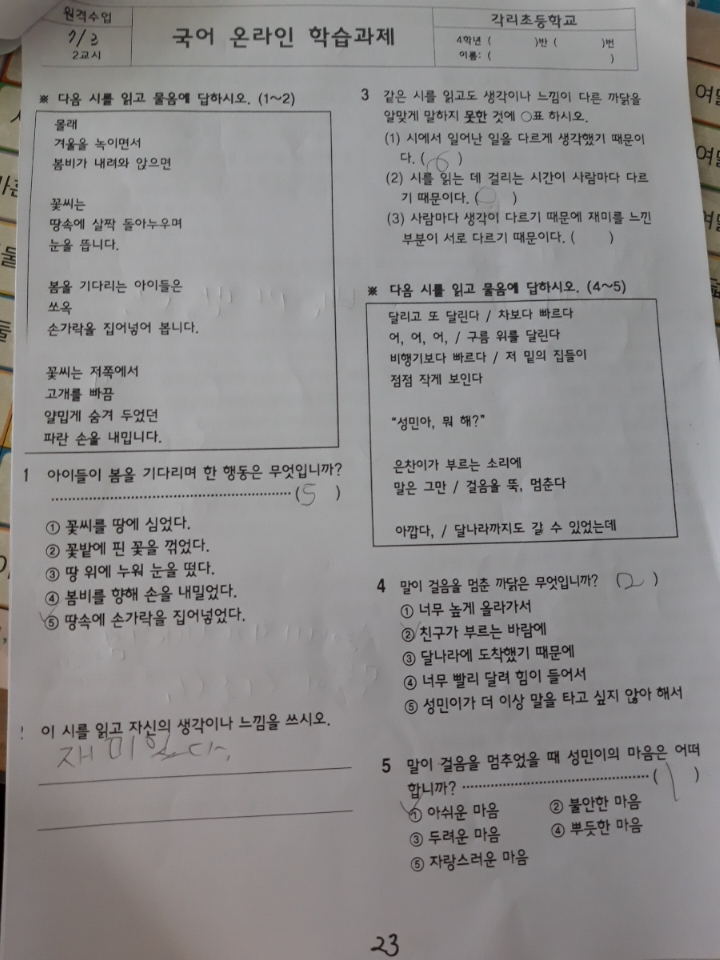 원격수업
7/3
2교시
국어 온라인 학습과제
각리초등학교
4학년 (          )반 (          )번
이름: (                    )
※ 다음 시를 읽고 물음에 답하시오. (1~2)
몰래
겨울을 녹이면서
봄비가 내려와 앉으면
꽃씨는
땅속에 살짝 돌아누우며
눈을 뜹니다.
봄을 기다리는 아이들은
쏘옥
손가락을 집어넣어 봅니다.
꽃씨는 저쪽에서
고개를 빠끔
얄밉게 숨겨 두었던
파란 손을 내밉니다.
1 아이들이 봄을 기다리며 한 행동은 무엇입니까?
(5)
① 꽃씨를 땅에 심었다.
② 꽃밭에 핀 꽃을 꺾었다.
③ 땅 위에 누워 눈을 떴다.
④ 봄비를 향해 손을 내밀었다.
⑤ 땅속에 손가락을 집어넣었다.
이 시를 읽고 자신의 생각이나 느낌을 쓰시오.
재미있다.
3 같은 시를 읽고도 생각이나 느낌이 다른 까닭을
알맞게 말하지 못한 것에 ○표 하시오.
(1) 시에서 일어난 일을 다르게 생각했기 때문이
다. (    )
(2) 시를 읽는 데 걸리는 시간이 사람마다 다르
기 때문이다. (○)
(3) 사람마다 생각이 다르기 때문에 재미를 느낀
부분이 서로 다르기 때문이다. (    )
※ 다음 시를 읽고 물음에 답하시오. (4~5)
달리고 또 달린다 / 차보다 빠르다
어, 어, 어, / 구름 위를 달린다
비행기보다 빠르다 / 저 밑의 집들이
점점 작게 보인다
“성민아, 뭐 해?”
은찬이가 부르는 소리에
말은 그만 / 걸음을 뚝, 멈춘다
아깝다, / 달나라까지도 갈 수 있었는데
4 말이 걸음을 멈춘 까닭은 무엇입니까? (2)
① 너무 높게 올라가서
② 친구가 부르는 바람에
③ 달나라에 도착했기 때문에
④ 너무 빨리 달려 힘이 들어서
⑤ 성민이가 더 이상 말을 타고 싶지 않아 해서
5 말이 걸음을 멈추었을 때 성민이의 마음은 어떠
합니까? (1)
① 아쉬운 마음 ② 불안한 마음
③ 두려운 마음 ④ 뿌듯한 마음
⑤ 자랑스러운 마음
23